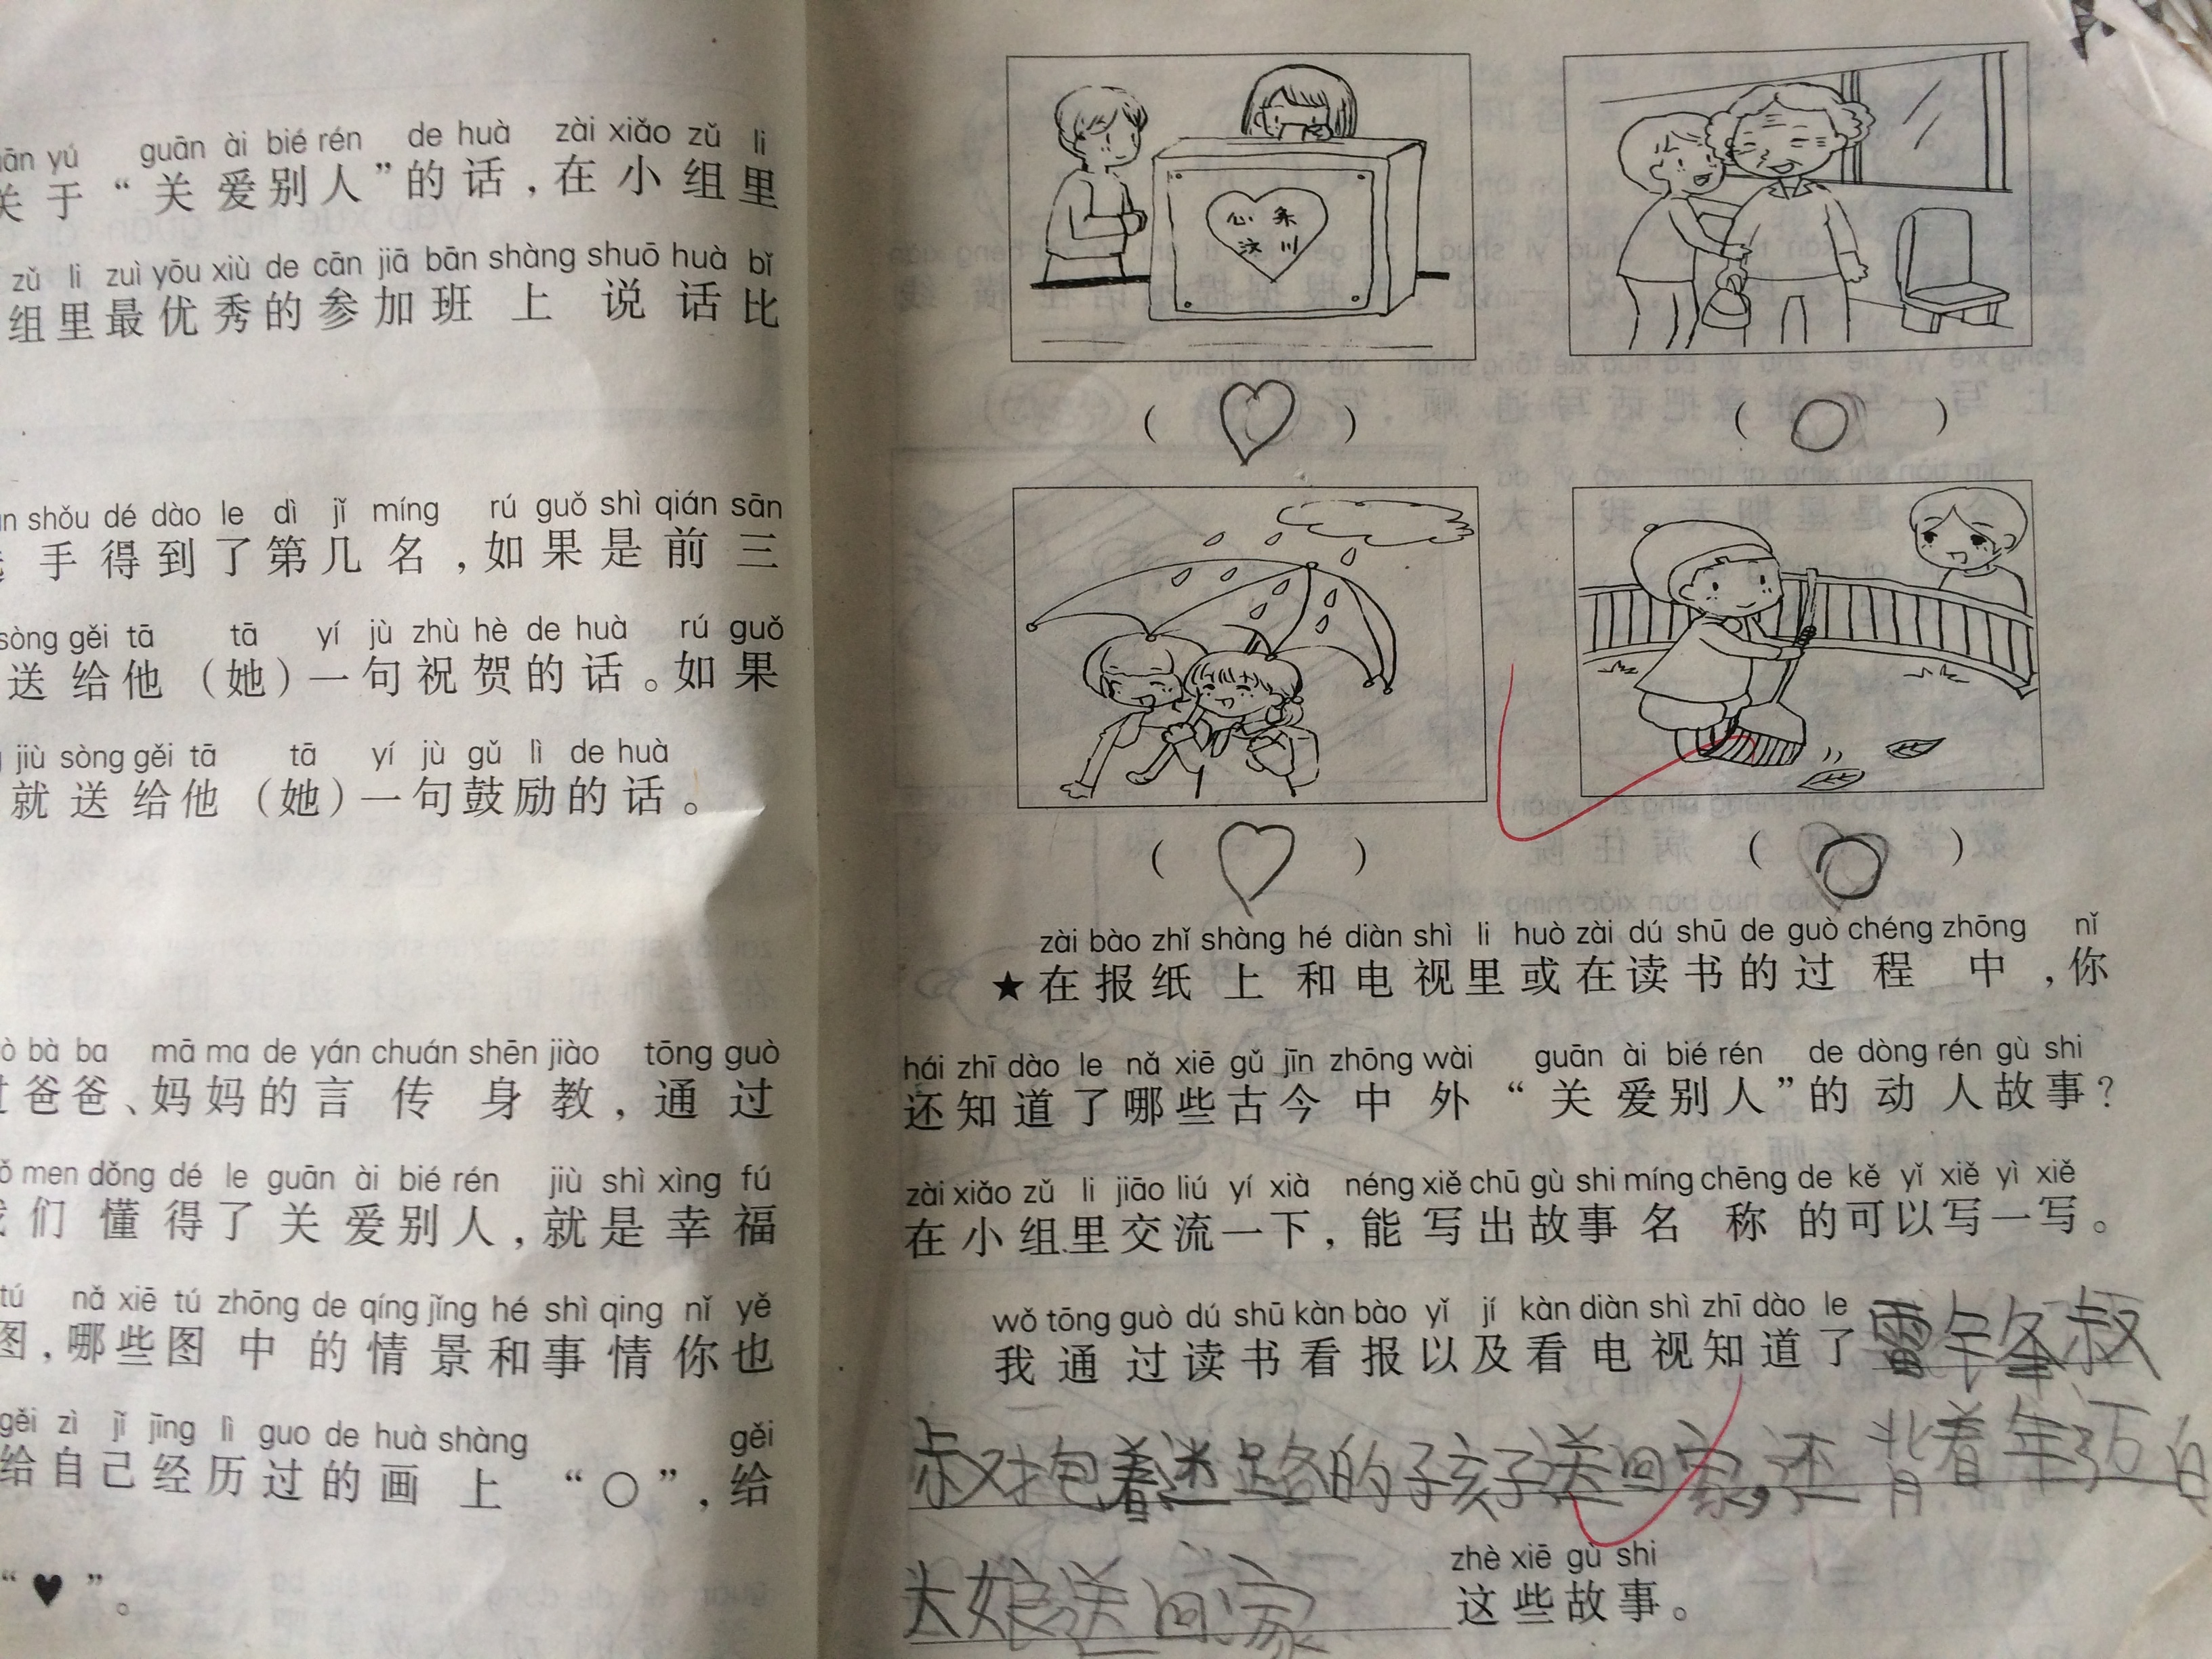 guān ài bié rén de huà zài xiǎo zǔ li
于“关爱别人”的话，在小组里
zǔ li zuì yōu xiù de cān jiā bān shàng shuō huà bǐ
组里最优秀的参加班上说话比
shǒu dé dào le dì jǐ míng rú guǒ shì qián sān
手得到了第几名，如果是前三
sòng gěi tā tā yí jù zhù hè de huà rú guǒ
送给他（她）一句祝贺的话。如果
jiù sòng gěi tā tā yí jù gǔ lì de huà
就送给他（她）一句鼓励的话。
bà ba mā ma de yán chuán shēn jiào tōng guò
爸爸、妈妈的言传身教，通过
men dǒng dé le guān ài bié rén jiù shì xìng fú
们懂得了关爱别人，就是幸福
tú nǎ xiē tú zhōng de qíng jǐng hé shì qing nǐ yě
图，哪些图中的情景和事情你也
gěi zì jǐ jīng lì guo de huà shàng gěi
给自己经历过的画上“○”，给
“♥”。
心系
汶川
（♡）（○）
（♡）（○）
zài bào zhǐ shàng hé diàn shì li huò zài dú shū de guò chéng zhōng nǐ
★在报纸上和电视里或在读书的过程中，你
hái zhī dào le nǎ xiē gǔ jīn zhōng wài guān ài bié rén de dòng rén gù shi
还知道了哪些古今中外“关爱别人”的动人故事？
zài xiǎo zǔ li jiāo liú yí xià néng xiě chū gù shi míng chēng de kě yǐ xiě yì xiě
在小组里交流一下，能写出故事名称的可以写一写。
wǒ tōng guò dú shū kàn bào yǐ jí kàn diàn shì zhī dào le
我通过读书看报以及看电视知道了雷锋叔
叔抱着迷路的孩子送回家，还背着年迈白
大娘送回家
zhè xiē gù shi
这些故事。